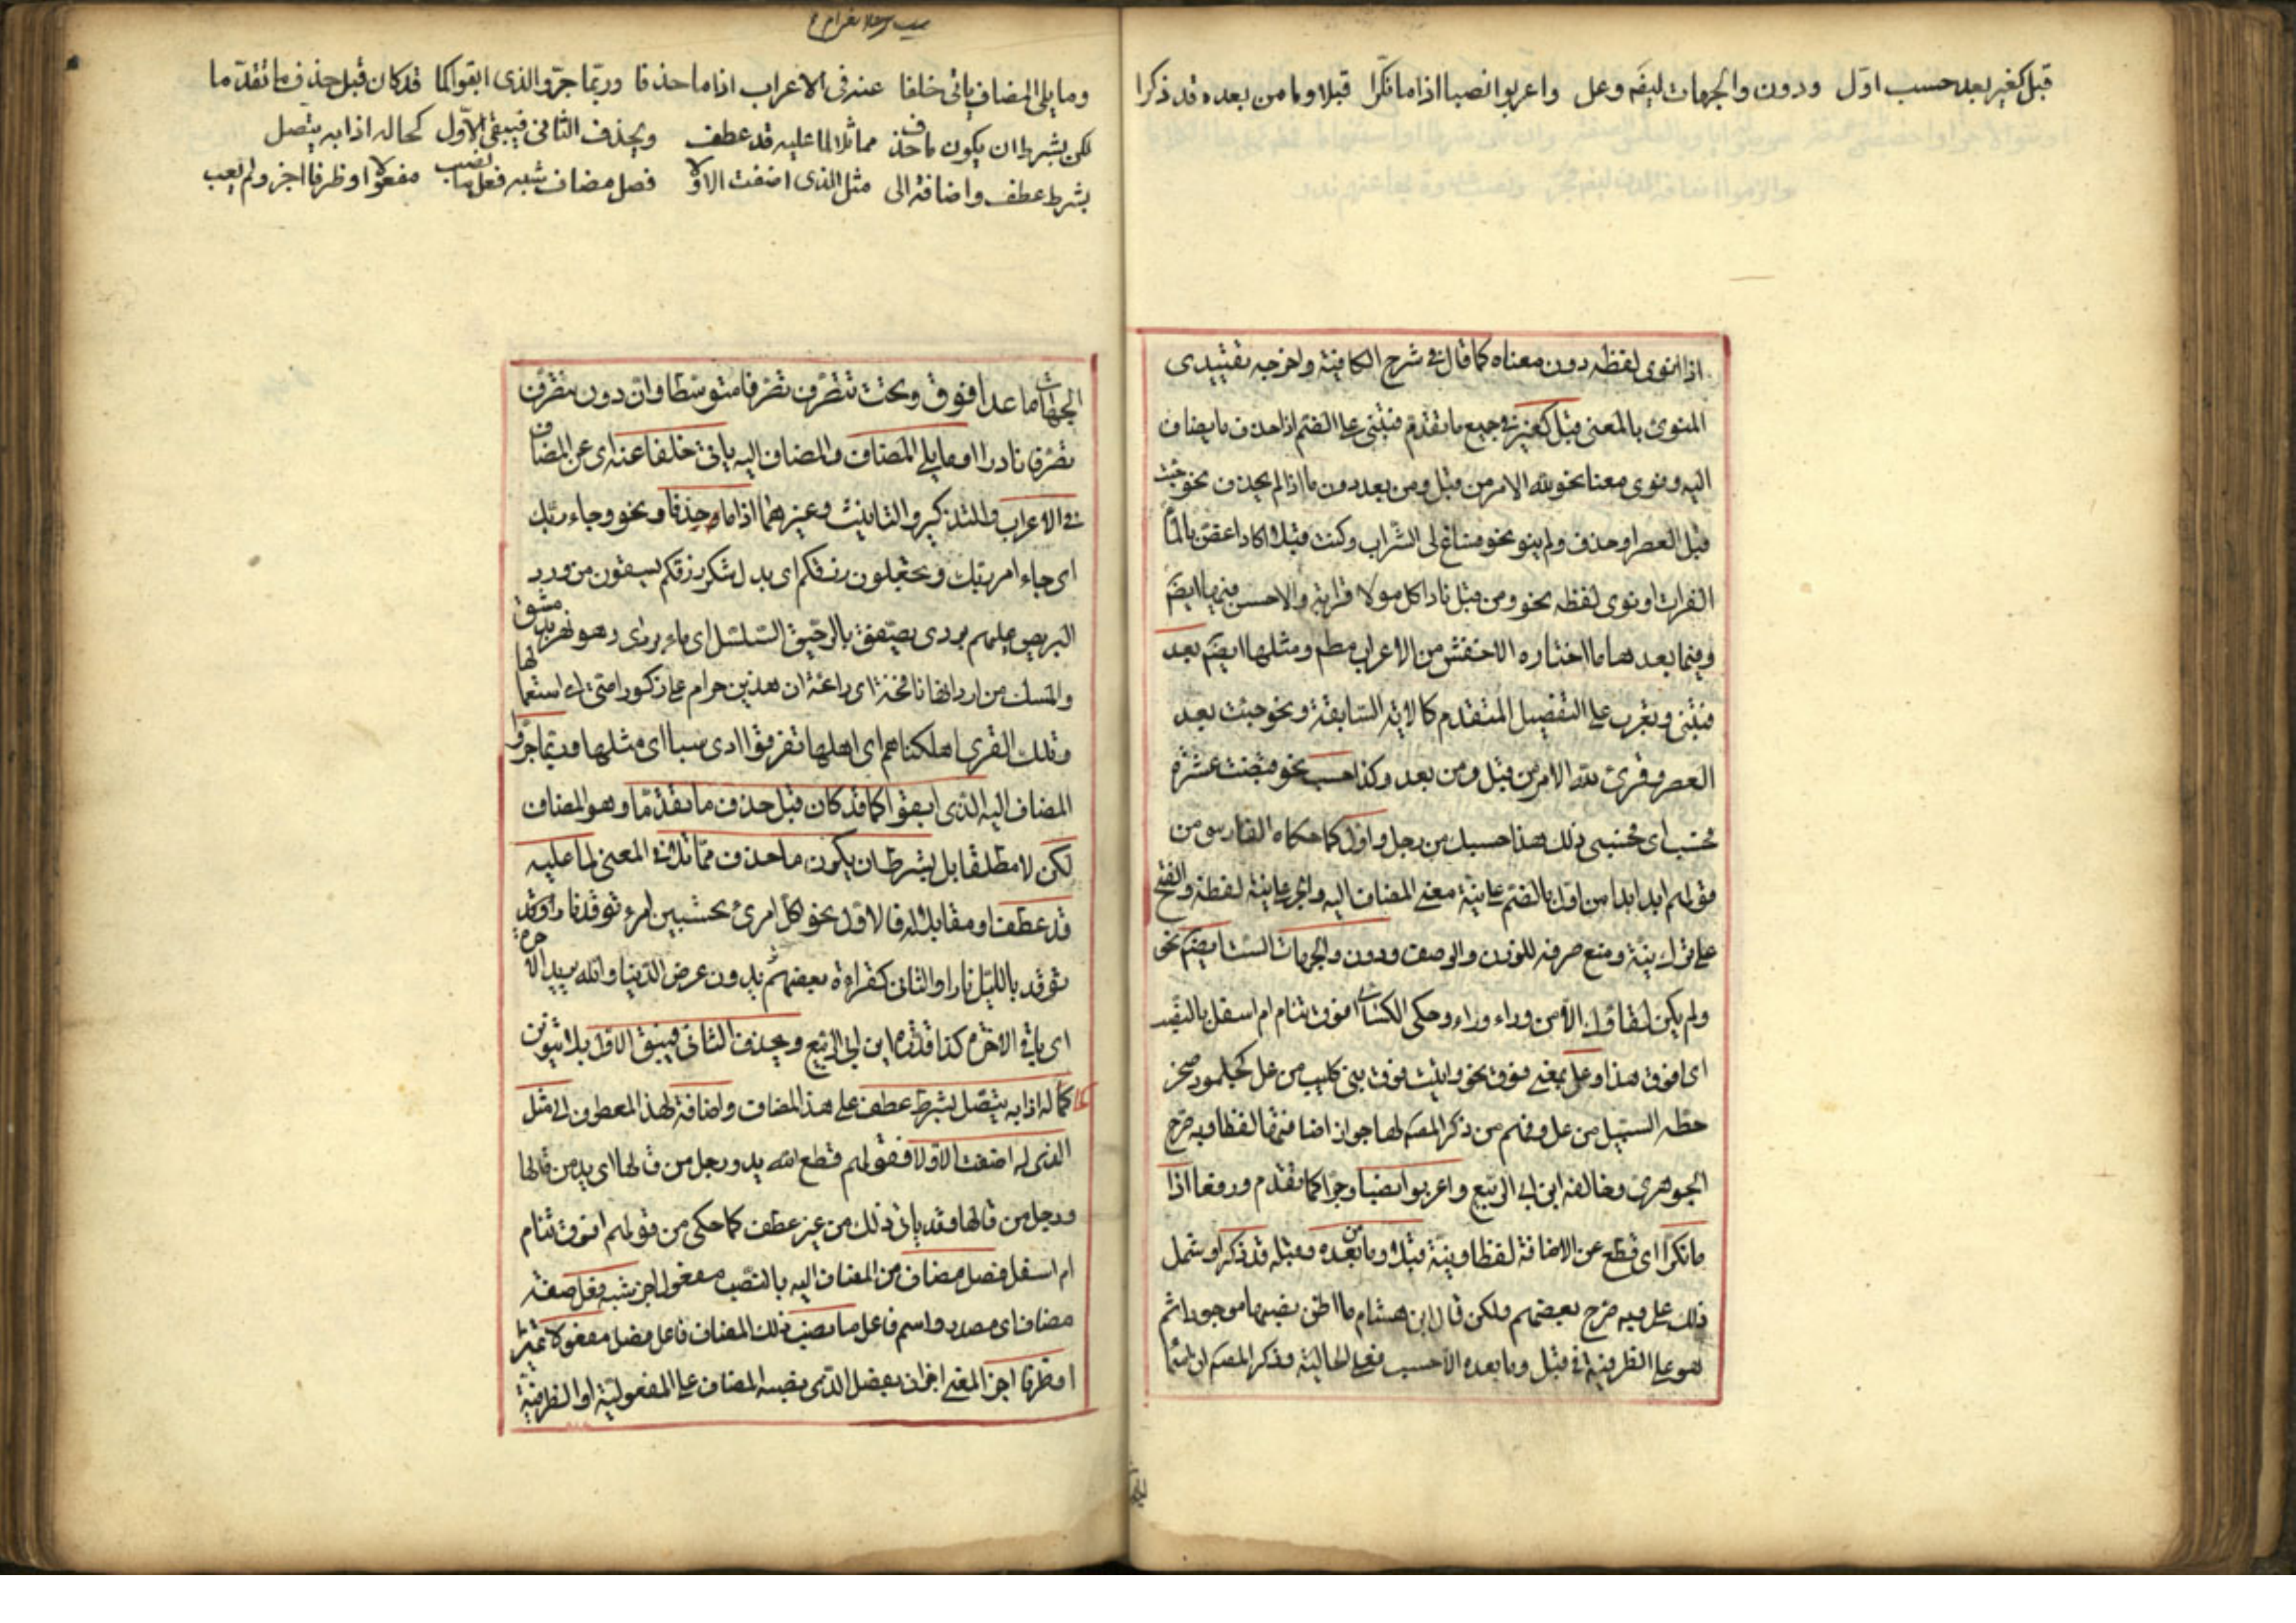 قبل كغير بعد حسب اوّل ودون والجهات ايضا وعل واعربوا نصبا اذا ما نكّرا قبلا وما من بعده قد ذكرا
اذا نوى لفظه دون معناه كما قال فى شرح الكافية واخرجه بتقييدى
المنوى بالمعنى قبل كغير فى جميع ما تقدّم فتبنى على الضم اذا حذف ما يضاف
اليه ونوى معناه نحو لله الامر من قبل ومن بعد دون ما اذا لم يحذف نحو جئت
قبل العصر او حذف ولم ينو نحو فساغ لى الشّراب وكنت قبلا اكاد اغصّ بالماء
الفرات او نوى لفظه نحو ومن قبل نادا كل مولا قرابة والاحسن فيها ايضا
وفيما بعدها ما اختاره الاخفش من الاعراب مطم ومثلها ايضا بعد
فتبنى وتعرب على التفصيل المتقدم كالاية السّابقة ونحو جئت بعد
العصر وقرئ لله الامر من قبل ومن بعد وكذا حسب نحو قبضت عشرة
فحسب اى فحسبى ذلك هذا حسبك من رجل واوّل كما حكاه الفارسى من
قولهم ابدا بذا من اول بالضم على نيّة معنى المضاف اليه والجر على نيّة لفظه والفتح
على ترك نيّة ومنع صرفه للوزن والوصف ودون والجهات السّت ايضا نحو
ولم يكن لقاؤك الا من وراء وراء وحكى الكسائى افوق تنام ام اسفل بالنصب
اى افوق هذا وعل بمعنى فوق نحو واتيت فوق بنى كليب من عل كجلمود صخر
حطّه السّيل من عل وفهم من ذكر المصم لها جواز اضافتها لفظا وبه صرّح
الجوهرى وخالفه ابن ابى الرّبيع واعربوا نصبا وجرّا كما تقدم ورفعا اذا
ما نكرا اى قطع عن الاضافة لفظا ونيّة قبلا وما من بعده وقبله قد ذكرا وشمل
ذلك عل وبه صرّح بعضهم ولكن قال ابن هشام ما اظن نصبها موجودا ثم
هو على الظرفية فى قبل وما بعده الّا حسب فعلى الحالية وذكر المصم ان اسما
وما يلى المضاف ياتى خلفا عنه فى الاعراب اذا ما حذفا وربّما جرّوا الذى ابقوا كما قد كان قبل حذف ما تقدّما
لكن بشرط ان يكون ما حذف مماثلا لما عليه قد عطف ويحذف الثانى فيبقى الاوّل كحاله اذا به يتّصل
بشرط عطف واضافة الى مثل الذى اضفت الاولا فصل مضاف شبه فعل ما نصب مفعولا او ظرفا اجز ولم يعب
الجهات ما عدا فوق وتحت تتصّرف تصّرفا متوسّطا وان دون تتصرّف
تصرّفا نادرا وما يلى المضاف والمضاف اليه ياتى خلفا عنه اى عن المضاف
فى الاعراب والتذكير والتانيث وغيرهما اذا ما حذفا ونحو وجاء ربّك
اى جاء امر ربّك وتجعلون رزقكم اى بدل شكر رزقكم يسقون من ورد
البريص عليهم بردى يصفق بالرحيق السّلسل اى ماء بردى وهو نهر بدمشق
والمسك من اردانها نافحة اى رائحة ان هذين حرام على ذكور امتى اى استعمالها
وتلك القرى اهلكناهم اى اهلها تفرقوا ادى سبا اى مثلها وربّما جرّوا
المضاف اليه الذى ابقوا كما قد كان قبل حذف ما تقدّما وهو المضاف
لكن لا مطلقا بل بشرط ان يكون ما حذف مماثلا فى المعنى لما عليه
قد عطف او مقابلا له فالاوّل نحو اكل امرئ تحسبين امرء توقد نارا وقد
توقد بالليل نارا والثانى كقراءة بعضهم تريدون عرض الدّنيا والله يريد الآخرة
اى باقى الاخرة كذا قدّره ابن ابى الرّبيع ويحذف الثانى فيبقى الاول بلا تنوين
كحاله اذا به يتّصل بشرط عطف على هذا المضاف واضافة لهذا المعطوف الى مثل
الذى له اضفت الاولا فقولهم قطع الله يد ورجل من قالها اى يد من قالها
ورجل من قالها وقد ياتى ذلك من غير عطف كما حكى من قولهم افوق تنام
ام اسفل فصل مضاف من المضاف اليه بالنصب مفعول اجز شبه فعل صفة
مضاف اى مصدر واسم فاعل ما نصب ذلك المضاف فاعل فصل مفعولا تمييز
او ظرفا اجز المعنى اجز ان يفصل الذى نصبه المضاف على المفعولية او الظرفية